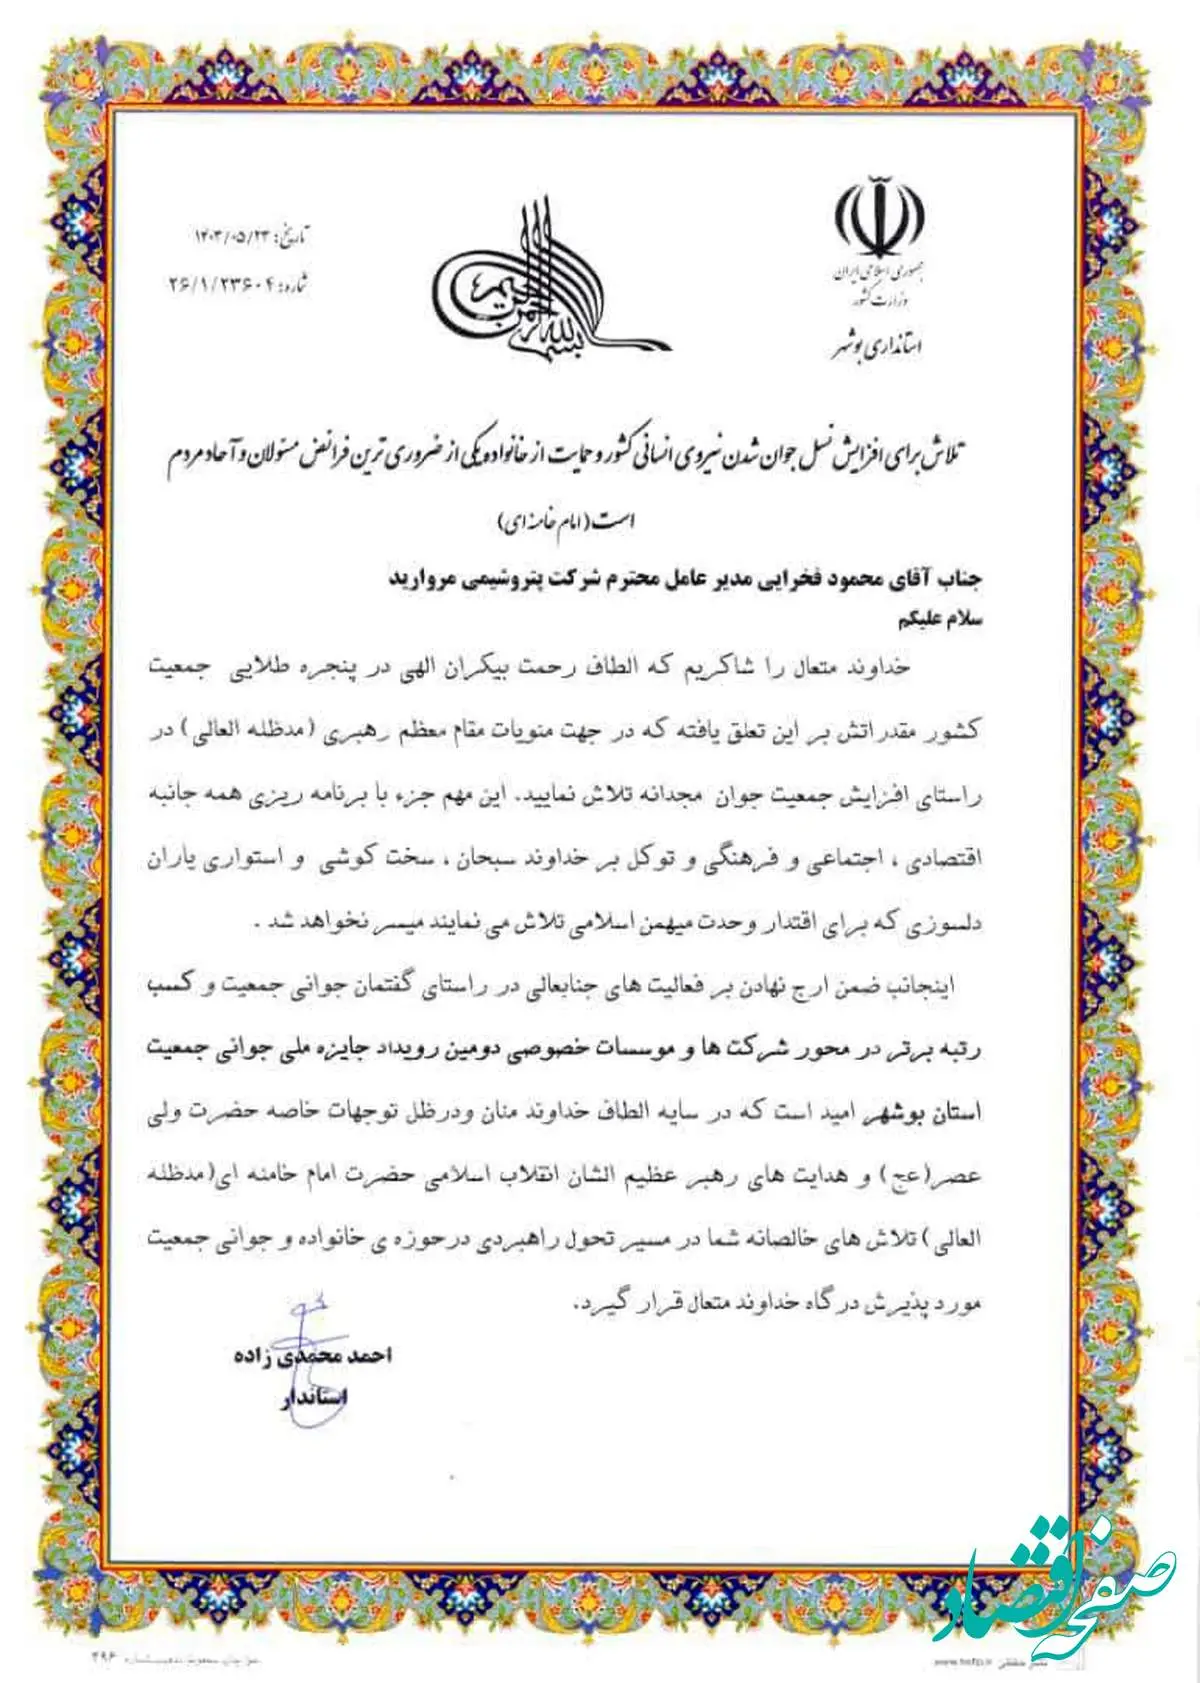 جمهوری اسلامی ایران
وزارت کشور
استانداری بوشهر
بسم الله الرحمن الرحیم
تاریخ: ۱۴۰۳/۰۵/۲۳
شماره: ۲۶/۱/۲۳۶۰۴
تلاش برای افزایش نسل جوان شدن نیروی انسانی کشور و حمایت از خانواده یکی از ضروری ترین فرائض مسئولان و آحاد مردم
است (امام خامنه ای)
جناب آقای محمود فخرایی مدیر عامل محترم شرکت پتروشیمی مروارید
سلام علیکم
خداوند متعال را شاکریم که الطاف رحمت بیکران الهی در پنجره طلایی جمعیت
کشور مقدراتش بر این تعلق یافته که در جهت منویات مقام معظم رهبری (مدظله العالی) در
راستای افزایش جمعیت جوان مجدانه تلاش نمایید. این مهم جزء با برنامه ریزی همه جانبه
اقتصادی ، اجتماعی و فرهنگی و توکل بر خداوند سبحان ، سخت کوشی و استواری یاران
دلسوزی که برای اقتدار وحدت میهمن اسلامی تلاش می نمایند میسر نخواهد شد .
اینجانب ضمن ارج نهادن بر فعالیت های جنابعالی در راستای گفتمان جوانی جمعیت و کسب
رتبه برتر در محور شرکت ها و موسسات خصوصی دومین رویداد جایزه ملی جوانی جمعیت
استان بوشهر امید است که در سایه الطاف خداوند منان ودرظل توجهات خاصه حضرت ولی
عصر(عج) و هدایت های رهبر عظیم الشان انقلاب اسلامی حضرت امام خامنه ای(مدظله
العالی) تلاش های خالصانه شما در مسیر تحول راهبردی درحوزه ی خانواده و جوانی جمعیت
مورد پذیرش درگاه خداوند متعال قرار گیرد.
احمد محمدی زاده
استاندار
صفحه اقتصاد
۳۹۶